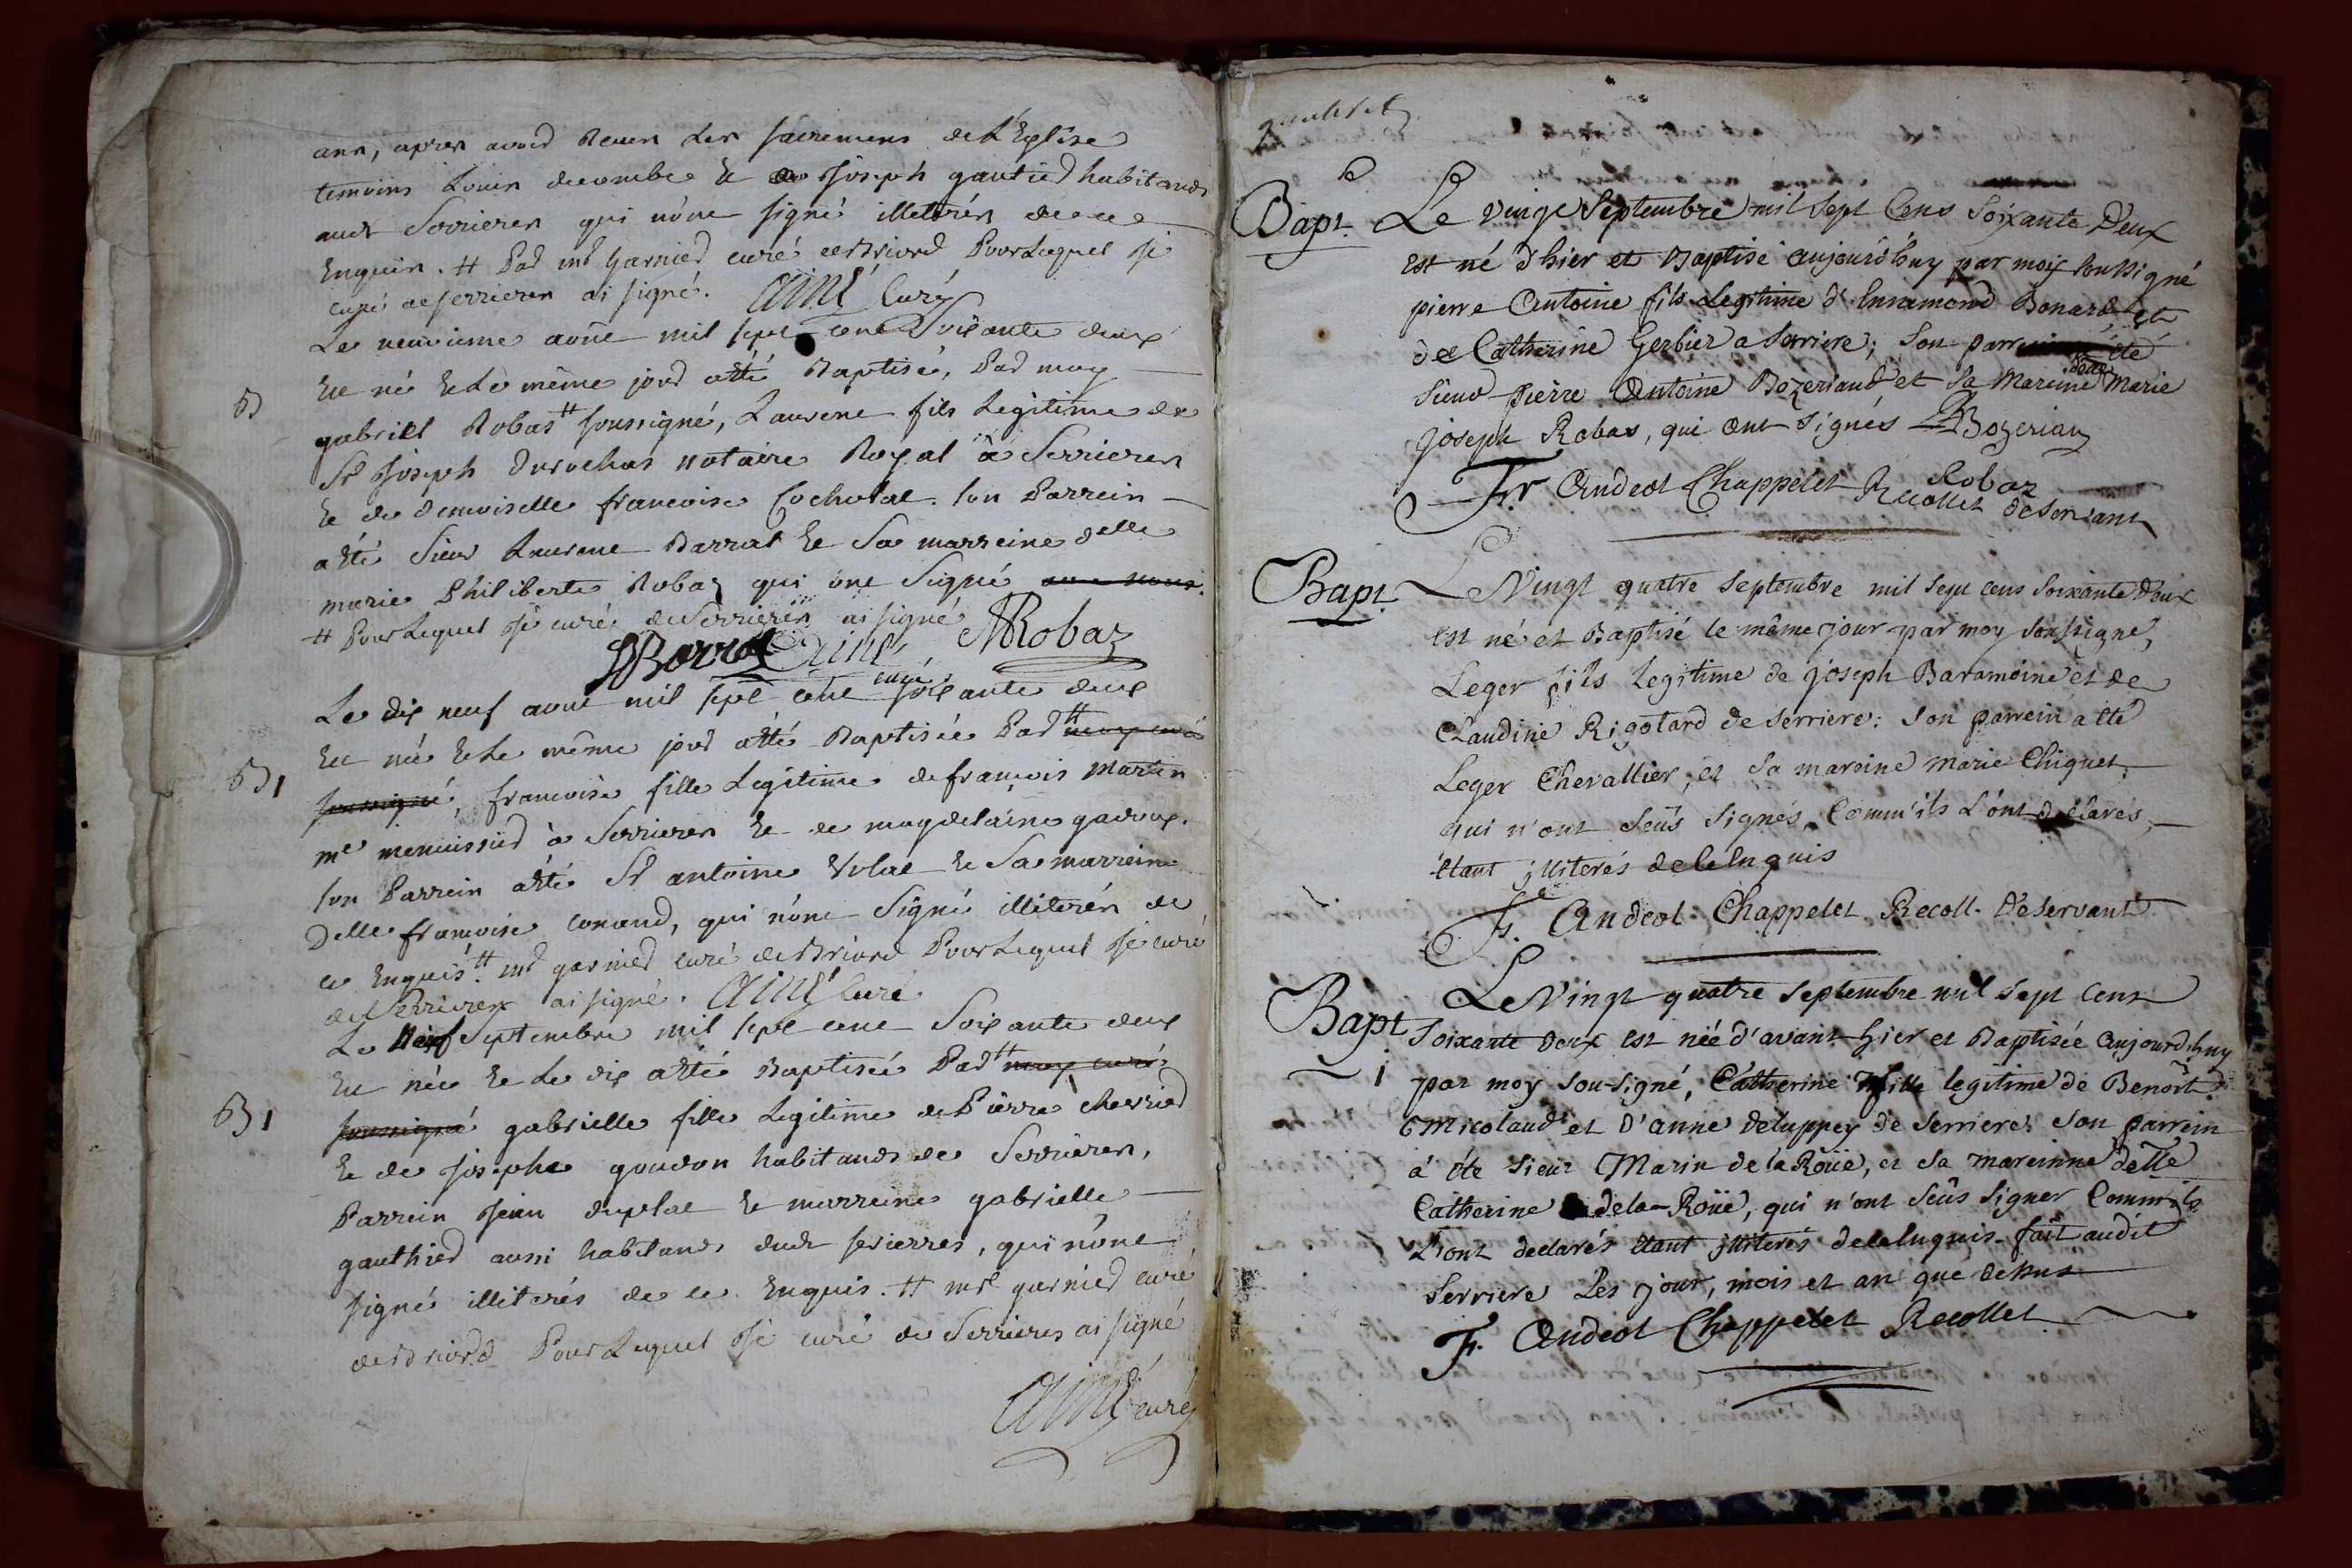 ans, apres avoir Receu les sacremens de L'Eglise
temoins Louis decombe et Joseph gautier habitands
audt Serrieres qui n'ont signé illeterés de ce
Enquis. # Par mr Garnier curé de Briord Pour Lequel Je
curé de serrieres ai signé. Aimé Curé
Le neuvieme aout mil sept cent Soixante deux
B
Est né et Le même jour a été Baptisé, Par moy
gabriel Robas # soussigné, Laurent fils Legitime de
Sr Joseph Durochas notaire Royal à Serrieres
et de demoiselle francoise Cochotat. son Parrein
a été Sieur Laurent Barrat et Sa marreine delle
marie Philiberte Robaz qui ont Signé avec nous.
# Pour Lequel Je curé de Serrieres ai signé
Barrat Aimé curé MRobaz
Le dix neuf aout mil sept cent soixante deux
B 1
Est née et Le même jour a été Baptisée Par # moy curé
soussigné, francoise fille Legitime de francois Martin
me menuissier à Serrieres et de magdelaine
son Parrein a été Sr antoine et Sa marreine
Delle francoise conand, qui n'ont Signé illiterés de
ce Enquis. # mr garnier curé de Briord Pour Lequel Je curé
de Serrieres ai signé. Aimé Curé
Le Neuf Septembre mil sept cent Soixante deux
B 1
Est née et Le dix a été Baptisée Par # moy curé
soussigné gabrielle fille Legitime de Pierre chevrier
et de Josephe goudon habitands de Serrieres,
Parrein Jean duplat et marreine gabrielle
gauthier aussi habitands dudt serierres, qui n'ont
signé illiterés de ce Enquis. # mre garnier curé
de Briord Pour Lequel Je curé de Serrieres ai signé
Aimé curé
Bapt. Le vingt Septembre mil sept Cens Soixante Deux
est né d'hier et Baptisé aujourd'huy par moy soussigné
pierre Antoine fils Legitime d'Ennamond Bonard et
de Catherine Gerbier a serriere; son parrein a été
sieur pierre Antoine Bozeriand et sa Mareine delle Marie
Joseph Robas, qui ont signés Bozerian
Robaz
Fr. Andeol Chappelet Recollet deservant
Bapt. Le Vingt quatre Septembre mil sept cens soixante deux
est né et Baptisé le même jour par moy soussigné,
Leger fils Legitime de joseph Baramoine et de
Claudine Rigotard de serriere: son parrein a été
Leger Chevallier, et sa mareine marie Chiquet,
qui n'ont seûs signés, Comm'ils L'ont déclarés,
êtant illiterés de ce Enquis
Fr. Andeol Chappelet Recoll. Deservant
Le Vingt quatre septembre mil sept cens
Bapt soixante deux est née d'avant hier et Baptisée aujourd'huy
1 par moy sou-signé, Catherine fille legitime de Benoît
Micolaud et d'anne deluppey de serriere: son parrein
à éte sieur Marin de la Roüe, et sa mareinne delle
Catherine de la Roüe, qui n'ont seûs signer Comm'ils
L'ont declarés êtant illiterés de ce Enquis. fait audit
Serriere Les jour, mois et an que dessus
F. Andeol Chappelet Recollet